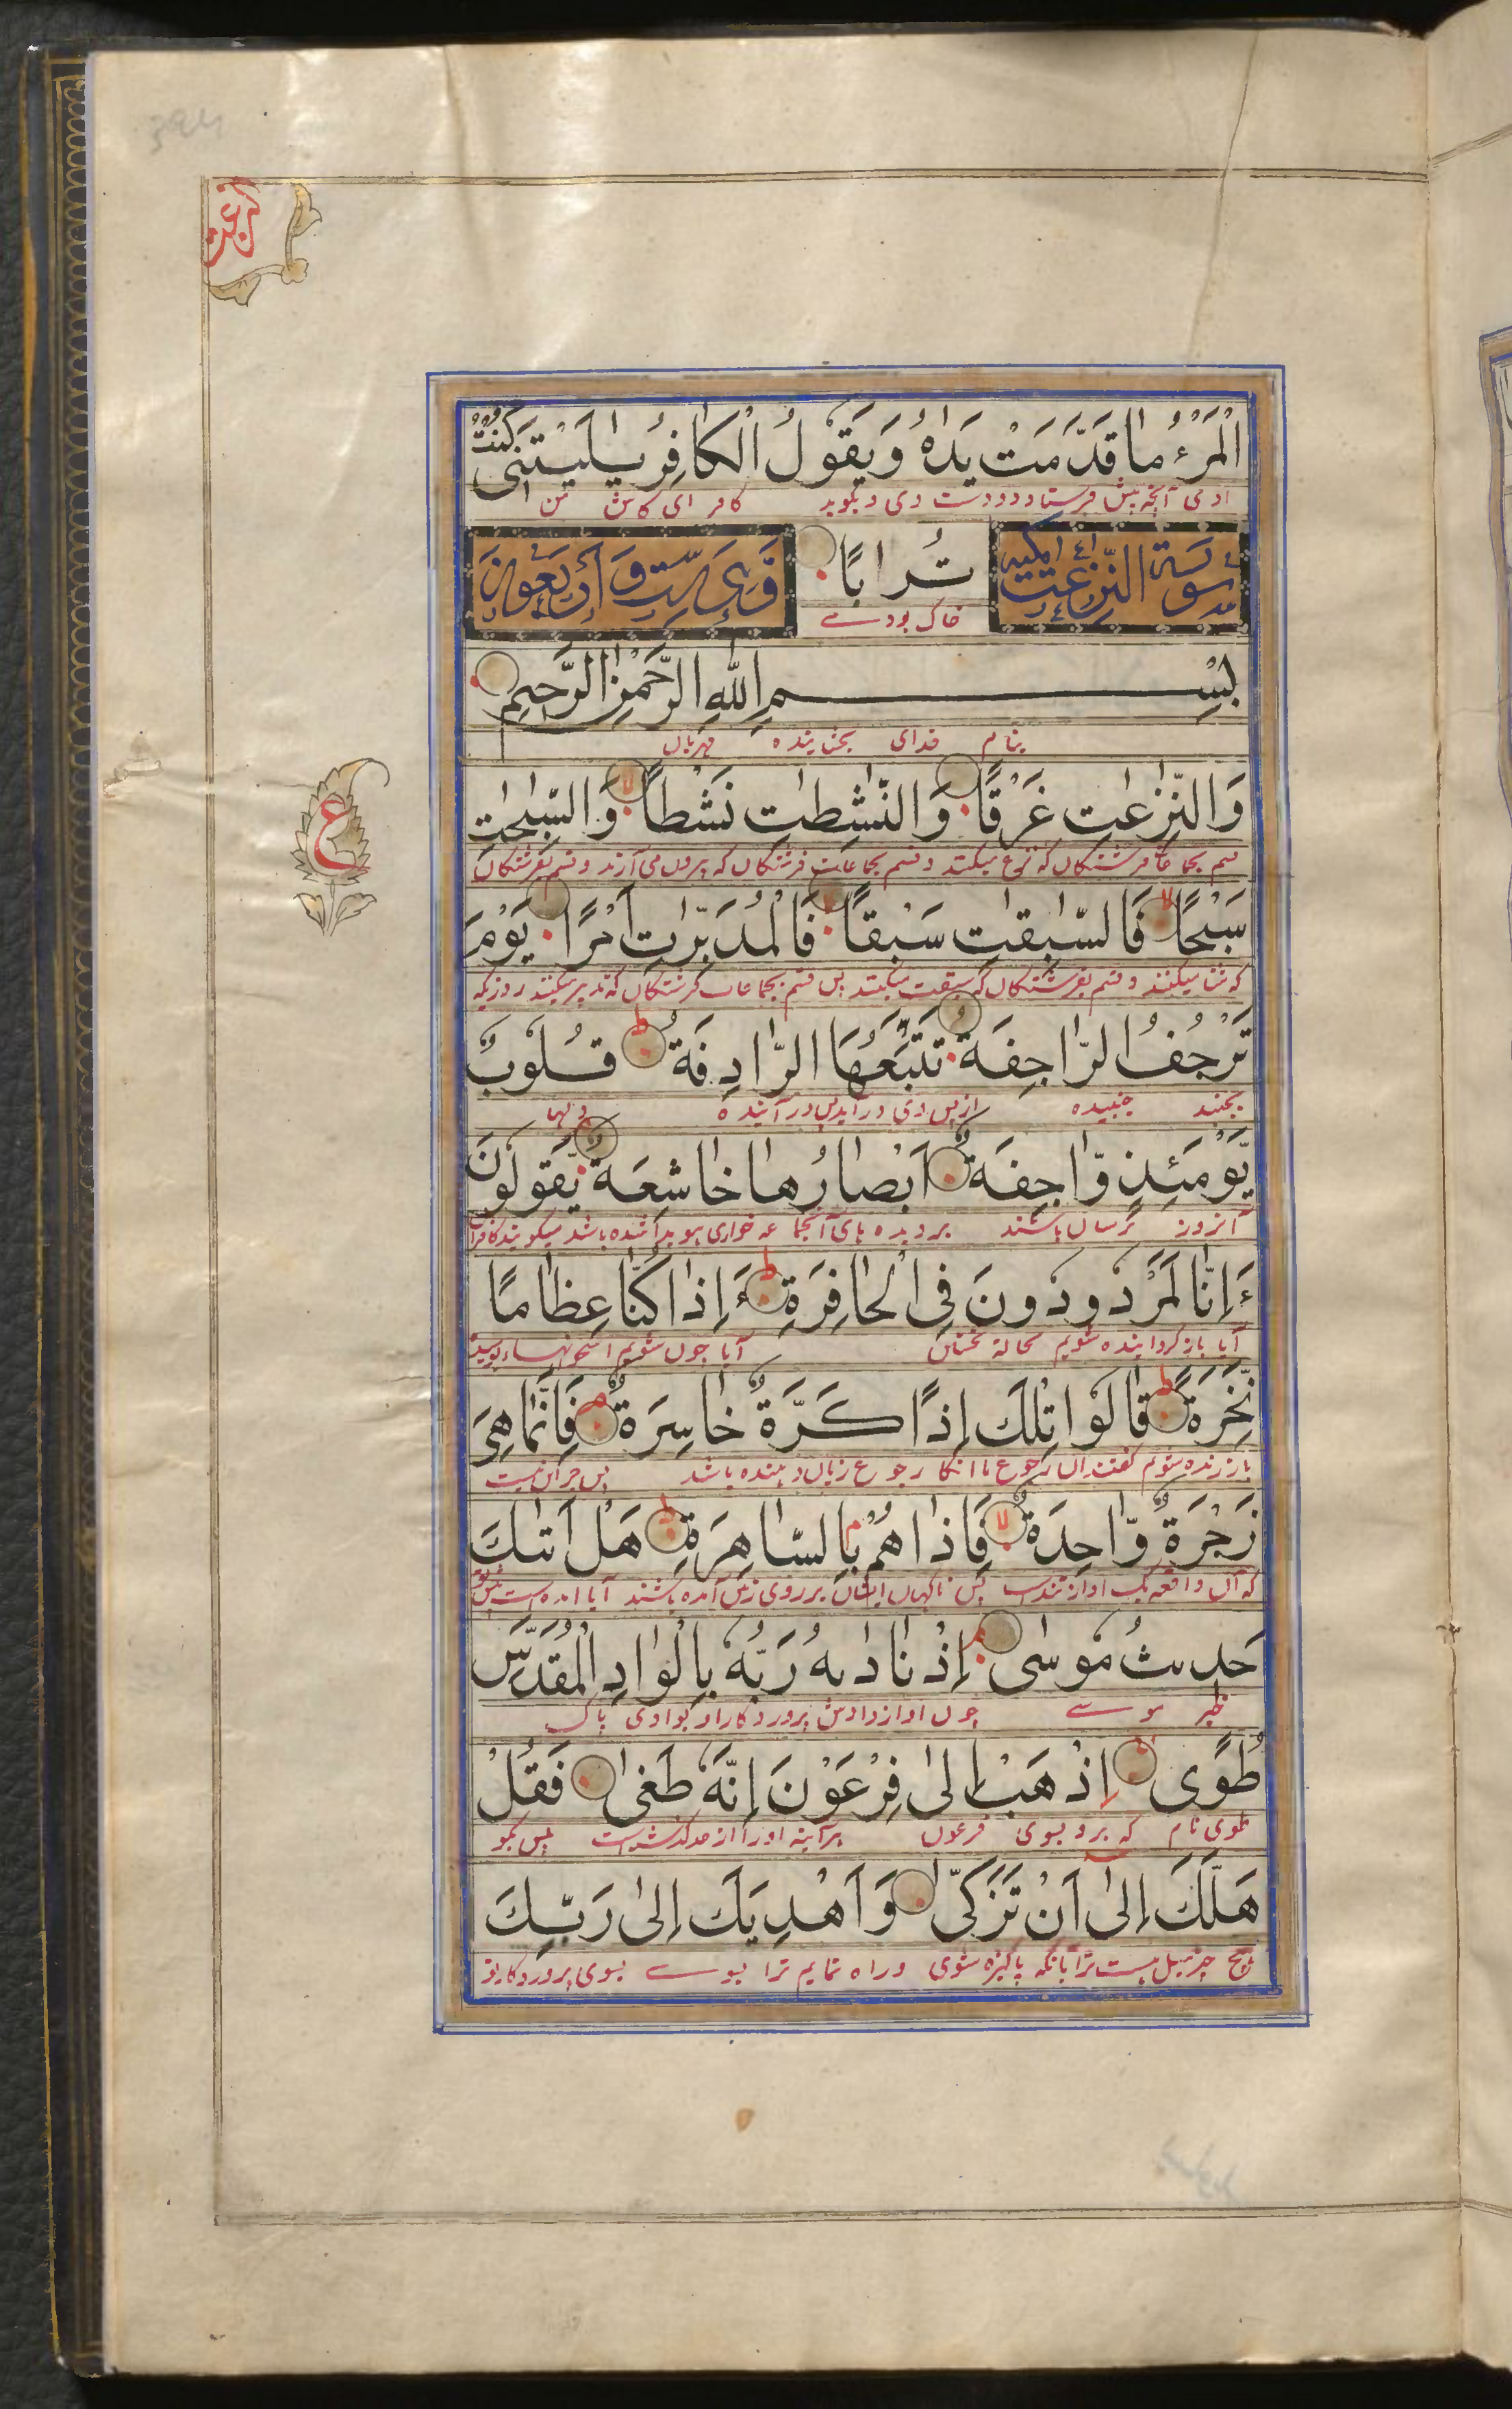 نزعت
الْمَرْءُ مَا قَدَّمَتْ يَدٰهُ وَيَقُولُ الْكَافِرُ يٰلَيْتَنِى كُنْتُ
ادمی آنچه پیش فرستاد دو دست وی و بگوید کافر ای کاش من
سورة النّزعت مكية
تُرَابًا
وهى ست وأربعون
خاک بودے
بِسْمِ اللّٰهِ الرَّحْمٰنِ الرَّحِيمِ
بنام خدای بخشاینده مهربان
ع
وَالنّٰزِعٰتِ غَرْقًا وَّالنّٰشِطٰتِ نَشْطًا وَّالسّٰبِحٰتِ
قسم بجماعات فرشتگان که نزع میکنند و قسم بجماعات فرشتگان که بیرون می آرند و قسم بفرشتگان
سَبْحًا فَالسّٰبِقٰتِ سَبْقًا فَالْمُدَبِّرٰتِ اَمْرًا يَوْمَ
که شنا میکنند و قسم بفرشتگان که سبقت میکنند پس قسم بجماعات فرشتگان که تدبیر میکنند روزیکه
تَرْجُفُ الرَّاجِفَةُ تَتْبَعُهَا الرَّادِفَةُ قُلُوبٌ
بجنبد جنبیده از پس وی در آید پس در آینده دلها
يَّوْمَئِذٍ وَّاجِفَةٌ اَبْصَارُهَا خَاشِعَةٌ يَقُولُونَ
آنروز ترسان باشند بر دیده های آنجماعه خواری هویدا شده باشد میگویند کافران
ءَاِنَّا لَمَرْدُودُونَ فِى الْحَافِرَةِ ءَاِذَا كُنَّا عِظَامًا
آیا باز گردانیده شویم بحالة نخستین آیا چون شویم استخوانهاء بوسیده
نَّخِرَةً قَالُوا تِلْكَ اِذًا كَرَّةٌ خَاسِرَةٌ فَاِنَّمَا هِىَ
باز زنده شویم گفتند آن رجوع ما انگاه رجوع زیان دهنده باشد پس جز این نیست
زَجْرَةٌ وَّاحِدَةٌ فَاِذَا هُمْ بِالسَّاهِرَةِ هَلْ اَتٰىكَ
که آن واقعه یک اواز تندست پس ناگهان ایشان بر روی زمین آمده باشند آیا امده است پیش تو
حَدِيثُ مُوسٰى اِذْ نَادٰىهُ رَبُّهُ بِالْوَادِ الْمُقَدَّسِ
خبر موسے چون اواز دادش پروردگار او بوادی پاک
طُوًى اِذْهَبْ اِلٰى فِرْعَوْنَ اِنَّهُ طَغٰى فَقُلْ
طوی نام که برو بسوی فرعون هرآینه او را از حد گذشته است پس بگو
هَلْ لَّكَ اِلٰٓى اَنْ تَزَكّٰى وَاَهْدِيَكَ اِلٰى رَبِّكَ
هیچ میل هست ترا بآنکه پاکیزه شوی و راه نمایم ترا بسوے بسوی پروردگار تو